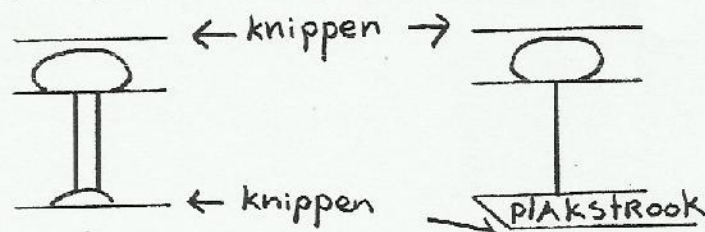 ← knippen →
← knippen
PLAKSTROOK